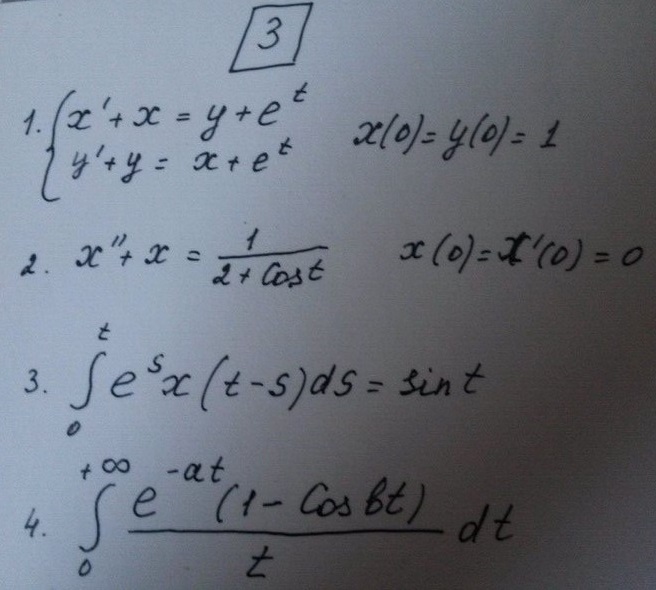 3
1. { x' + x = y + e^t    x(0) = y(0) = 1
y' + y = x + e^t
2. x'' + x = 1/(2 + Cos t)    x(0) = x'(0) = 0
3. ∫_0^t e^s x(t-s)ds = sin t
4. ∫_0^{+∞} e^{-at}(1 - Cos bt)/t dt